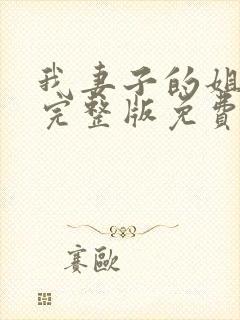 我妻子的姐
完整版免费
赛欧